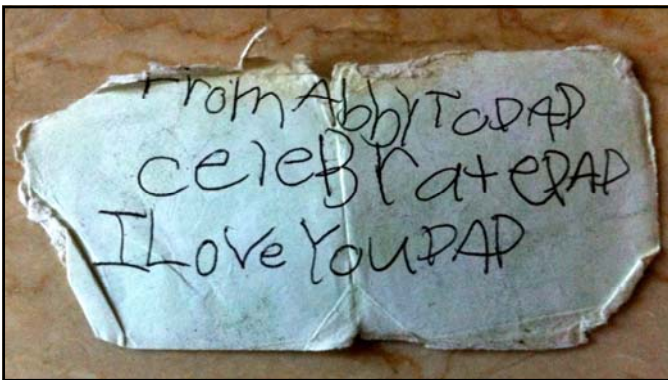 From Abby To DAD
celeBrate DAD
I Love You DAD